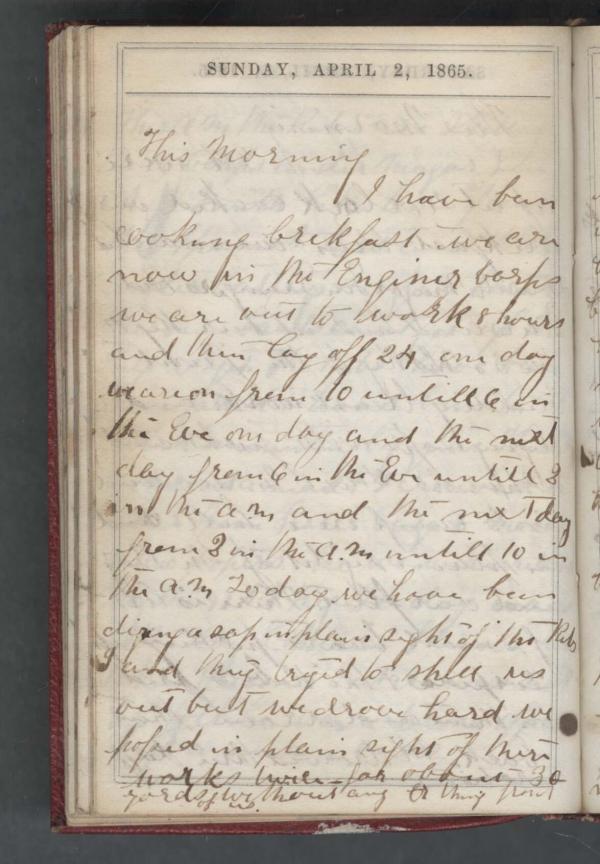 SUNDAY, APRIL 2, 1865.
This Morning
I have ben
cooking brekfast we are
now in the Enginer Corps
we are out to work 8 hours
and then lay off 24 one day
we are on from 10 untill 6 in
the Eve one day and the next
day from 6 in the Eve untill 3
in the a.m and the next day
from 3 in the a.m untill 10 in
the a.m Today we have been
diging a sap in plain sight of the Rebs
and they tryed to shell us
out but we drove hard we
in plain sight of there
works twice for about 30
yards without any thing front
of us